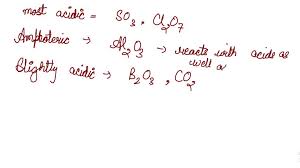 most acidic = SO₃, Cl₂O₇
Amphoteric → Al₂O₃ → reacts with acids as
well a
Slightly acidic → B₂O₃, CO₂